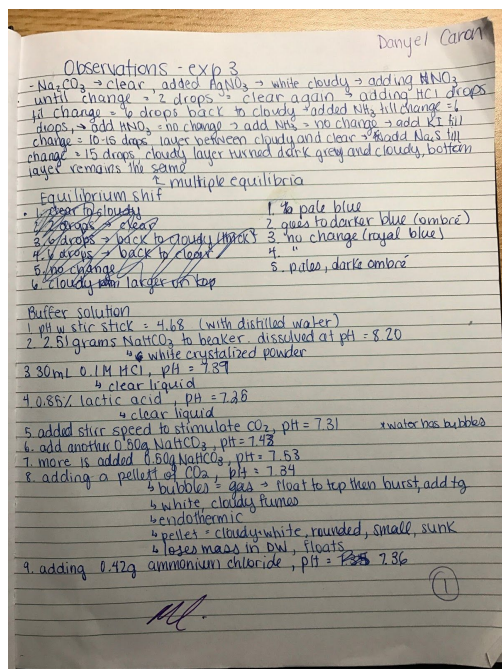 Danyel Caron
Observations - exp 3
- Na₂CO₃ → clear, added AgNO₃ → white cloudy → adding HNO₃
until change = 2 drops = clear again → adding HCl drops
til change = 6 drops back to cloudy → added NH₃ till change = 6
drops, → add HNO₃ = no change → add NH₃ = no change → add KI till
change = 10-15 drops layer between cloudy and clear → add Na₂S till
change = 15 drops, cloudy layer turned dark grey and cloudy, bottom
layer remains the same
↑ multiple equilibria
Equilibrium shif
1. clear to cloudy
2. 2 drops → clear
3. 6 drops → back to cloudy (thick)
4. 6 drops → back to clear
5. no change
6. cloudy larger on top
1. pale blue
2. goes to darker blue (ombré)
3. no change (royal blue)
4. "
5. pales, darke ombré
Buffer solution
1. pH w stir stick = 4.68 (with distilled water)
2. 2.51 grams NaHCO₃ to beaker. dissolved at pH = 8.20
↳ white crystalized powder
3. 30mL 0.1M HCl, pH = 7.39
↳ clear liquid
4. 0.85% lactic acid, pH = 7.26
↳ clear liquid
5. added stir speed to stimulate CO₂, pH = 7.31 *water has bubbles
6. add another 0.50g NaHCO₃, pH = 7.43
7. more is added 0.50g NaHCO₃, pH = 7.53
8. adding a pellett of CO₂, pH = 7.34
↳ bubbles = gas → float to top then burst, add tg
↳ white, cloudy fumes
↳ endothermic
↳ pellet = cloudy + white, rounded, small, sunk
↳ loses mass in DW, floats
9. adding 0.42g ammonium chloride, pH = 7.36
1